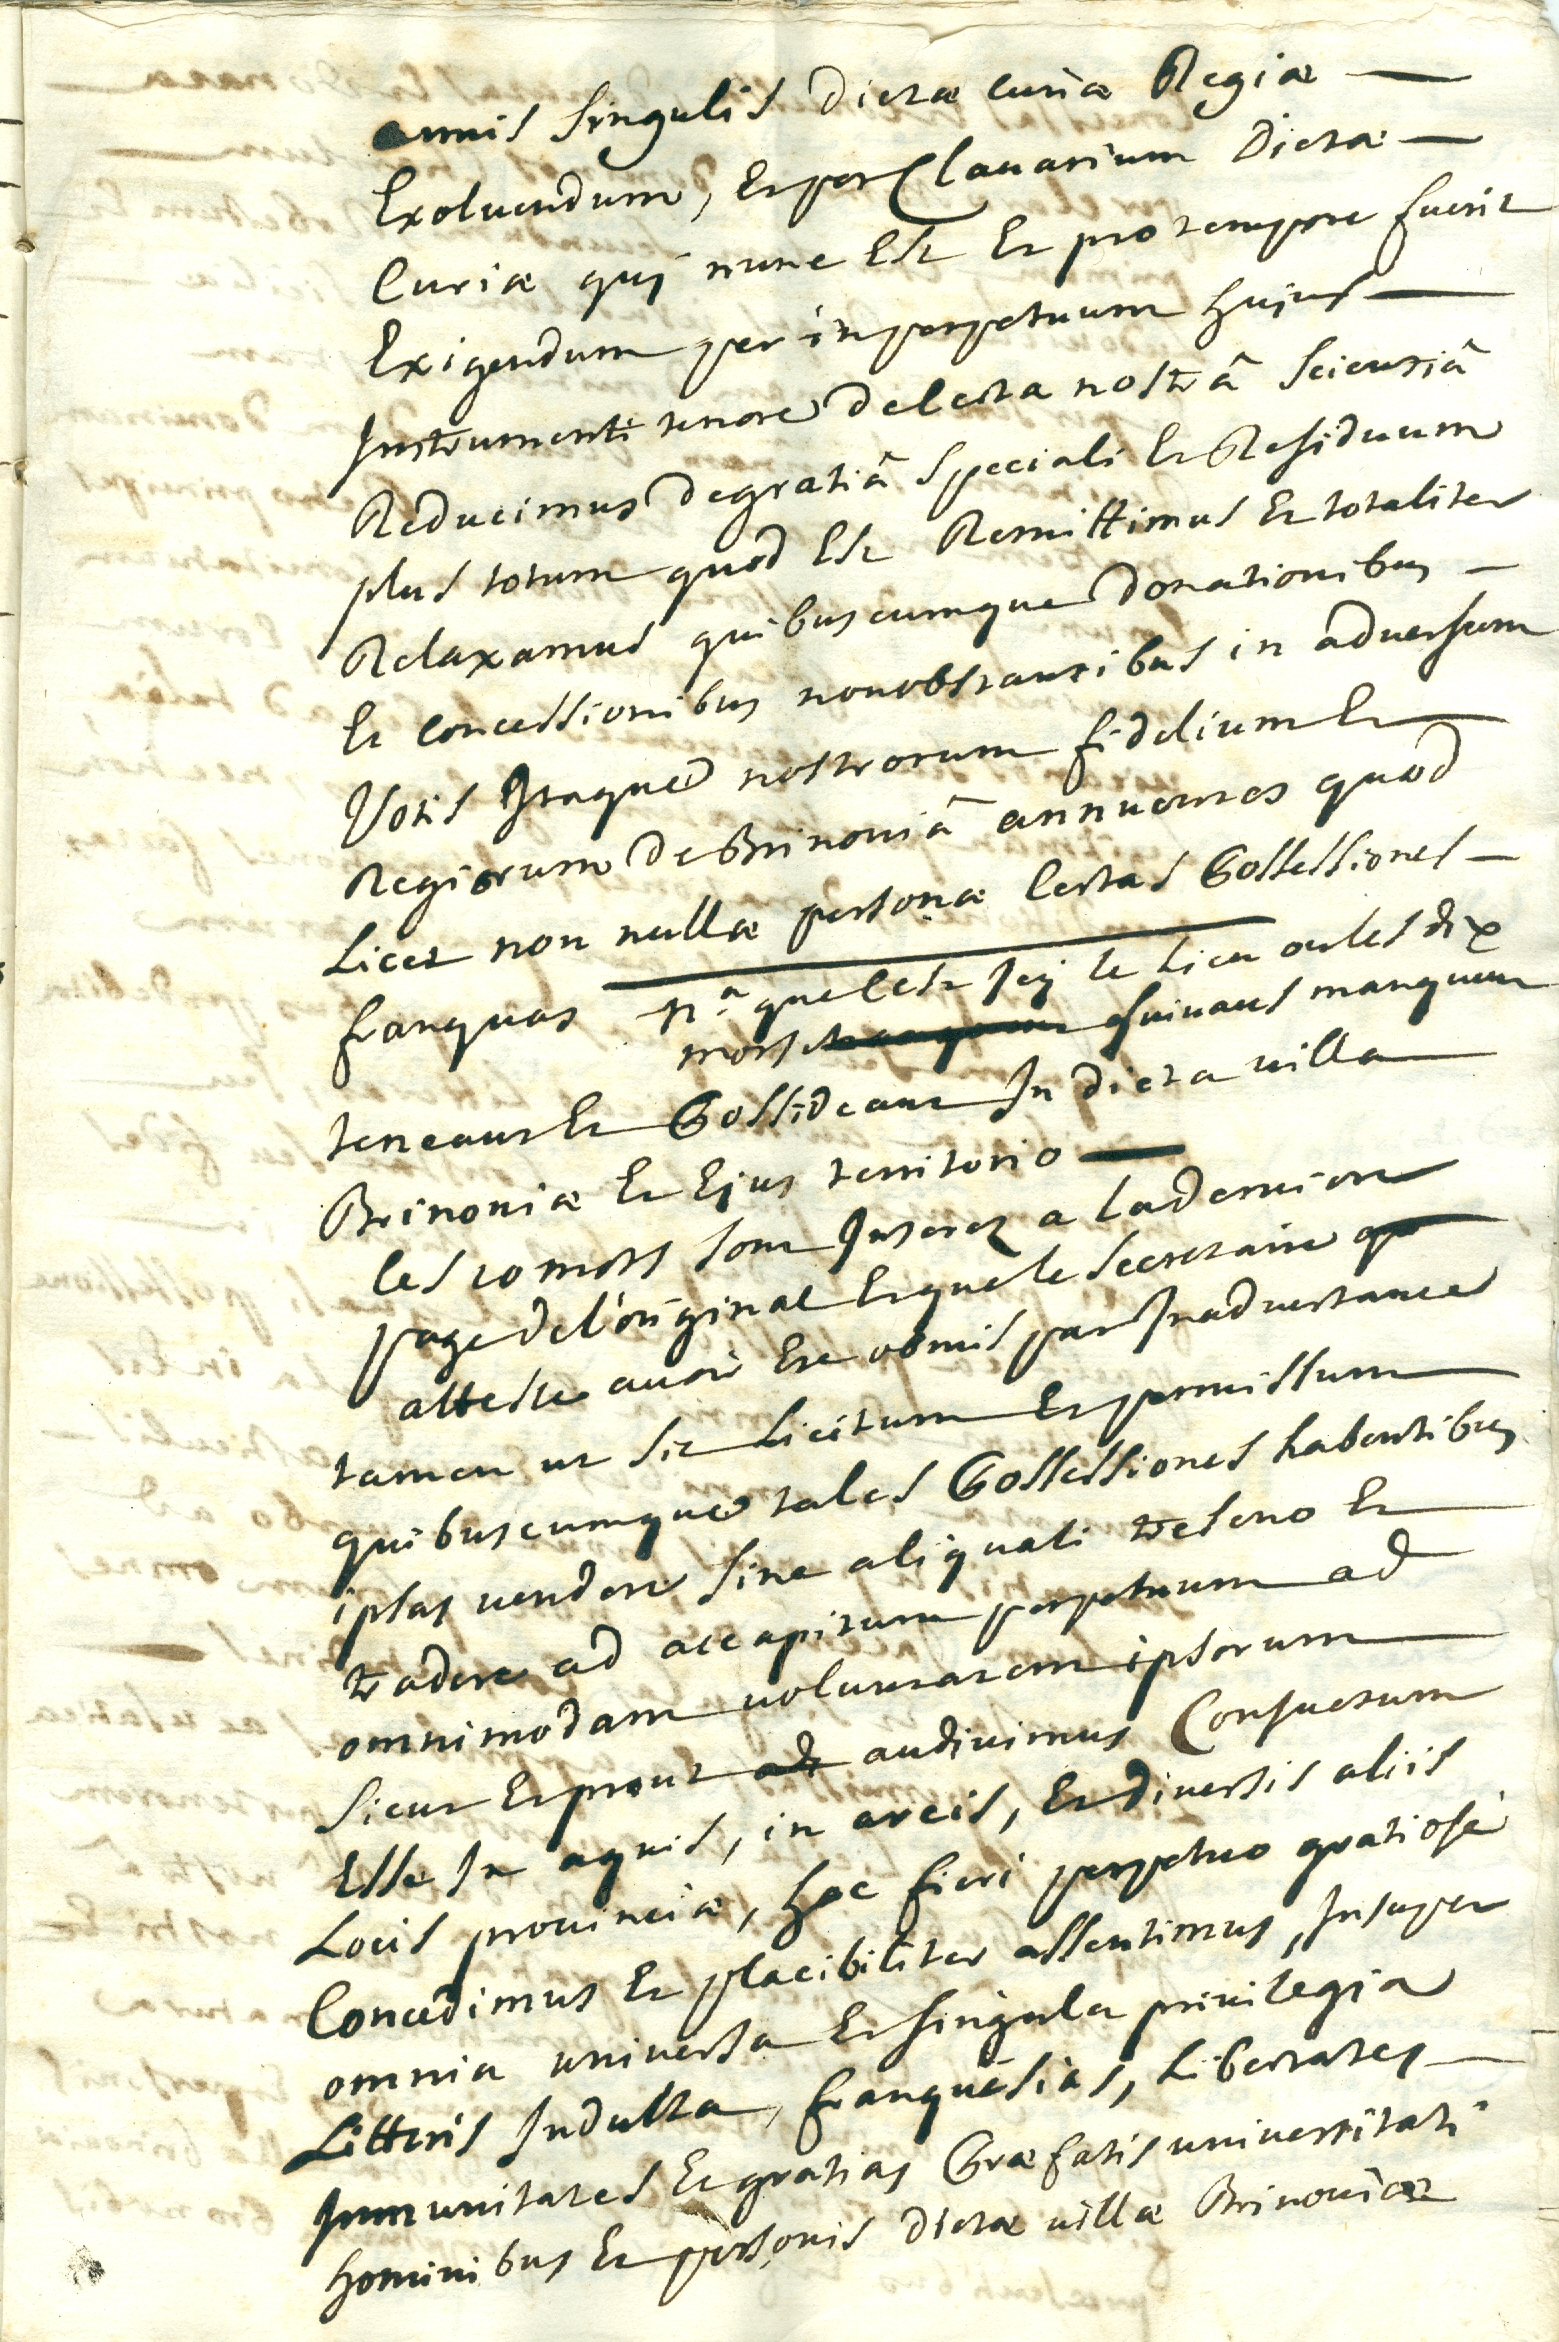 annis singulis dictæ curiæ Regiæ —
Exoluendum, Et per Clauarium Dictæ —
Curiæ quj nunc Est Et pro tempore fuerit
Exigendum per inperpetuum hujus —
Instrumenti tenore de certa nostrâ scientiâ
Reducimus de gratiâ speciali Et Residuum
plus totum quod Est Remittimus Et totaliter
Relaxamus quibuscumque donationibus —
Et concessionibus nonobstantibus in aduersum
Votis Itaque nostrorum fidelium Et
Regiorum de Brinoniâ annuentes quod
Licet non nullæ personæ Certas Possessiones —
franquas Nª que c'est Icy le Lieu ou les dix
mots suiuants manquent
teneant Et Possideant In dicta villa
Brinoniæ Et Ejus territorio —
les 10 mots sont Inserez a la derniere
page de l'original Et que le secretaire
atteste auoir Ete obmis par Inaduertance
tamen ut sit Licitum Et permissum
quibuscumque tales Possessiones habentibus
ipsas vendere sine aliquali treseno Et
tradere ad accapitum perpetuum ad
omnimodam uoluntatem ipsorum
sicut Et prout audiuimus Consuetum
Esse In aquis, in arcis, Et diuersis aliis
Locis prouinciæ, hoc fieri perpetuo gratiosè
Concedimus Et placibiliter assentimus, Insuper
omnia uniuersa Et singula priuilegia
Litteris Indulta, franquesias, Libertates —
Immunitates Et gratias Præfatis uniuersitati
hominibus Et personis dictæ uillæ Brinoniæ